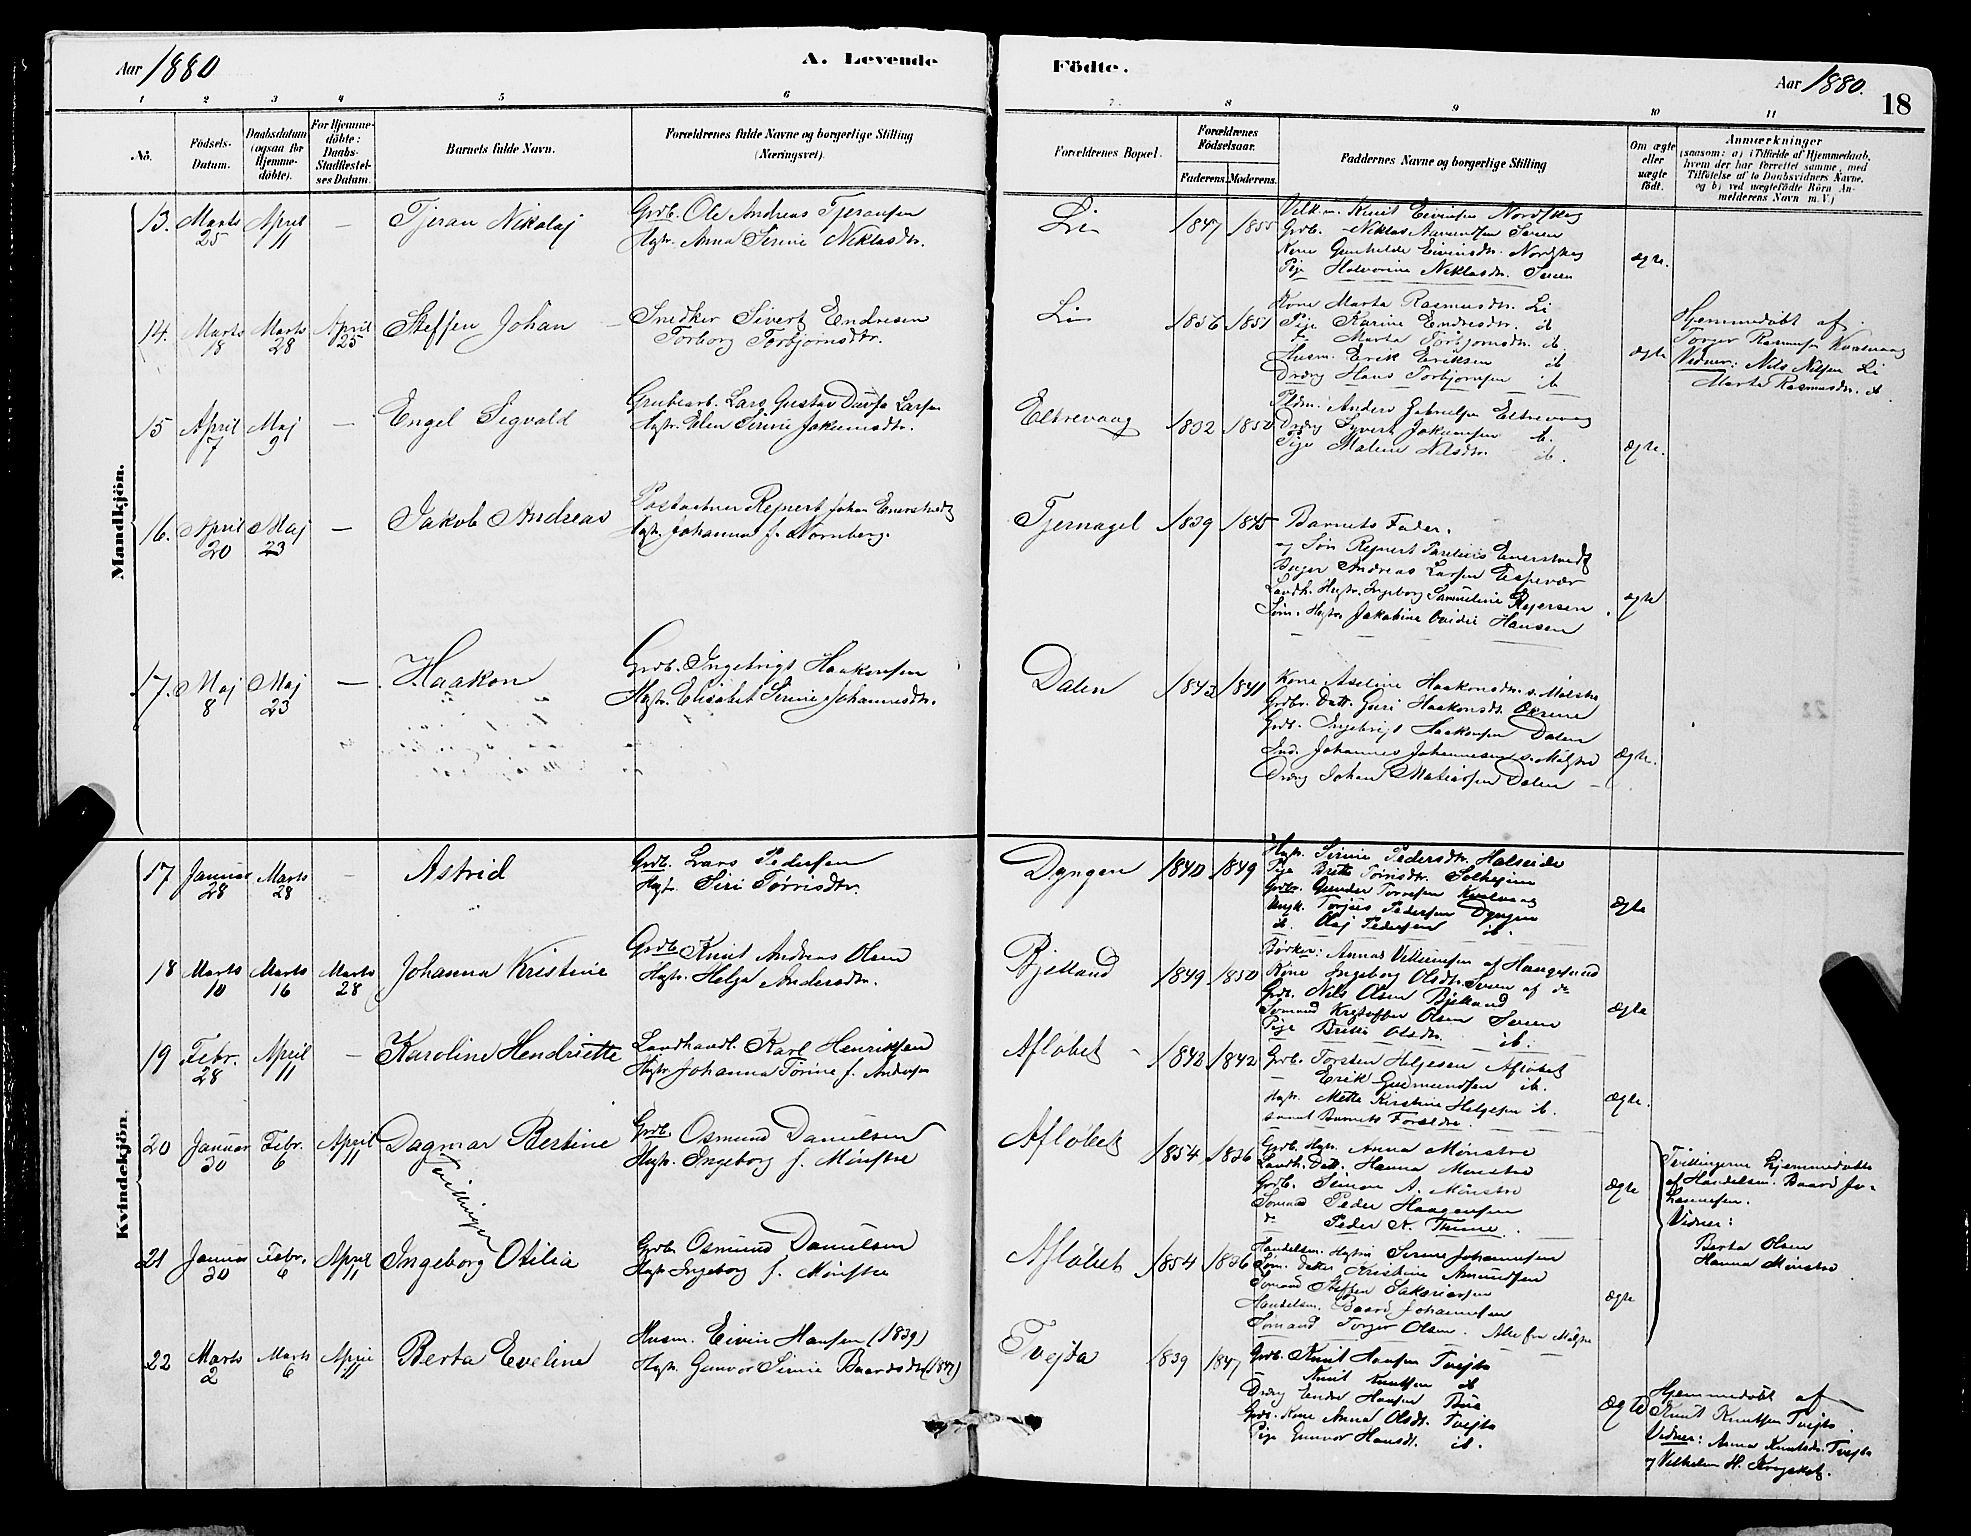 Aar 1880
A. Levende Födte.
Aar 1880.
18
1 2 3 4 5 6 7. 8 9 10 11
No.
Födsels-
Datum.
Daabsdatum
(ogsaa for
Hjemme-
döbte).
For Hjemme-
döbte:
Daabs-
Stadfæstel-
ses Datum.
Barnets fulde Navn.
Forældrenes fulde Navne og borgerlige Stilling
(Næringsvei).
Forældrenes Bopæl.
Forældrenes
Födselsaar.
Faderens. Moderens.
Faddernes Navne og borgerlige Stilling
Om ægte
eller
uægte
födt.
Anmærkninger
(saasom: a) i Tilfælde af Hjemmedaab,
hvem der har forrettet samme, med
Tilföielse af to Daabsvidners Navne,
og b) ved uægtefödte Börn An-
melderens Navn m. V.)
Mandkjön.
13. Marts 25 April 11 — Tjeran Nikolaj
Grdb. Ole Andreas Tjeransen
Hustr. Anna Serine Niklasdtr.
Li 1847 1855
Knut Eivinsen
Grdb. Niklas Aamundsen
Kone Gunhilde Eivinsdtr.
Pige Halvorine Niklasdtr.
ægte.
14. Marts 18 Marts 28 April 25 Steffen Johan
Snedker Sivert Endresen
Torborg Torbjørnsdtr.
Li 1856 1851
Kone Marta Rasmusdtr. Li
Pige Karine Endresdtr. ib
do Marta Torbjørnsdtr. ib.
Husm. Erik Eriksen ib
Drdrg Hans Torbjørnsen ib
ægte
Hjemmedøbt af
Torger Rasmussen
Vidner: Nils Nilsen Li
Marta Rasmusdtr. ib.
15 April 7 Maj 9 — Engel Sigvald
Grubearb. Lars Gustav Larsen
Hustr. Elen Serine Jakumsdtr.
Eltrevaag 1832 1850
Anders Gabrielsen Eltrevaag
Drdrg Syvert Jokumsen ib.
Pige Malene Nilsdtr. ib.
ægte.
16. April 20 Maj 23 — Jakob Andreas
Rejnert Johan Enerstvedt
Hustr. Johanna f. Nornberg.
Tjernagel 1839 1845
Barnets Fader.
og Søn Rejnert Enerstvedt
Andreas Larsen Espevær
Landh. Hustr. Ingeborg Samueline Rejersen
Hustr. Jakobine Hansen
ægte
17. Maj 8 Maj 23 — Haakon
Grdb. Ingebrigt Haakonsen
Hustr. Elisabet Serine Johannesdtr.
Dalen 1843 1841
Kone Aseline Haakonsdtr.
Datt. Guri Haakonsdtr.
Grdb. Ingebrigt Haakonsen Dalen
Johannes Johannesen
Drdrg Johan Matiassen Dalen
ægte.
Kvindekjön.
17 Januar 28 Marts 28 — Astrid
Grdb. Lars Pedersen
Hustr. Siri Tørrisdtr.
Dyngen 1840 1849
Hustr. Serine Pedersdtr. Halseide
Pige Brita Tørrisdtr. Solhejm
Grdbr. Gunder Torresen Kvalvaag
Ungk. Torjus Pedersen Dyngen
do. Olaj Pedersen ib.
ægte
18 Marts 10 Marts 16 Marts 28 Johanna Kristine
Grdb. Knut Andreas Olsen
Hustr. Helga Andersdtr.
Bjelland 1849 1850
af Haugesund
Kone Ingeborg Olsdtr.
Grdb. Nils Olsen Bjelland
Sømand Kristoffer Olsen
Pige Brita Olsdtr. ib.
ægte
19 Febr. 28 April 11 — Karoline Hendriette
Landhandl. Karl Henriksen
Hustr. Johanna Torine f. Andersen
Afløbet 1842 1842
Grdb. Torsten Helgesen Afløbet
Erik Gudmundsen ib.
Hustr. Mette Kirstine Helgesen ib.
samt Barnets Forældre.
ægte.
20 Januar 30 Febr. 6 April 11 Dagmar Bertine
Tvillinger
Grdb. Osmund Danielsen
Hustr. Ingeborg f. Mønstre
Afløbet 1854 1836
Grdb. Hustr. Anna Mønstre
Landh. Datt. Hanna Mønstre
Grdb. Simon A. Mønstre
Sømand Peder Haagensen
do Peder A. Thime.
ægte
Tvillingerne hjemmedøbte
af Handelsm. Baard Jo-
hannesen.
Vidner:
Berta Olsen
Hanna Mønstre
21 Januar 30 Febr. 6 April 11 Ingeborg Otilia
Grdb. Osmund Danielsen
Hustr. Ingeborg f. Mønstre
Afløbet 1854 1836
Handelsm. Hustru Serine Johannesen
Kristine Amundsen
Sømand Steffen Sakariasen
Handelsm. Baard Johannesen
Sømand Torger Olsen. Alle fra
ægte
22 Marts 2 Marts 6 April 11 Berta Eveline
Husm. Eivin Hansen (1839)
Hustr. Gunvor Serine Baardsdtr. (1847)
Tvejta 1839 1847
Grdb. Knut Hansen Tvejta
Knut Knutsen ib
Drdrg Endre Hansen
Grdb. Kone Anna Olsdt. Tvejta
Pige Gunvor Hansdt. ib.
ægte
Hjemmedøbt af
Knut Knutsen Tvejta.
Vidner: Anna Knutsdtr. Tvejta
og Vilhelm H.